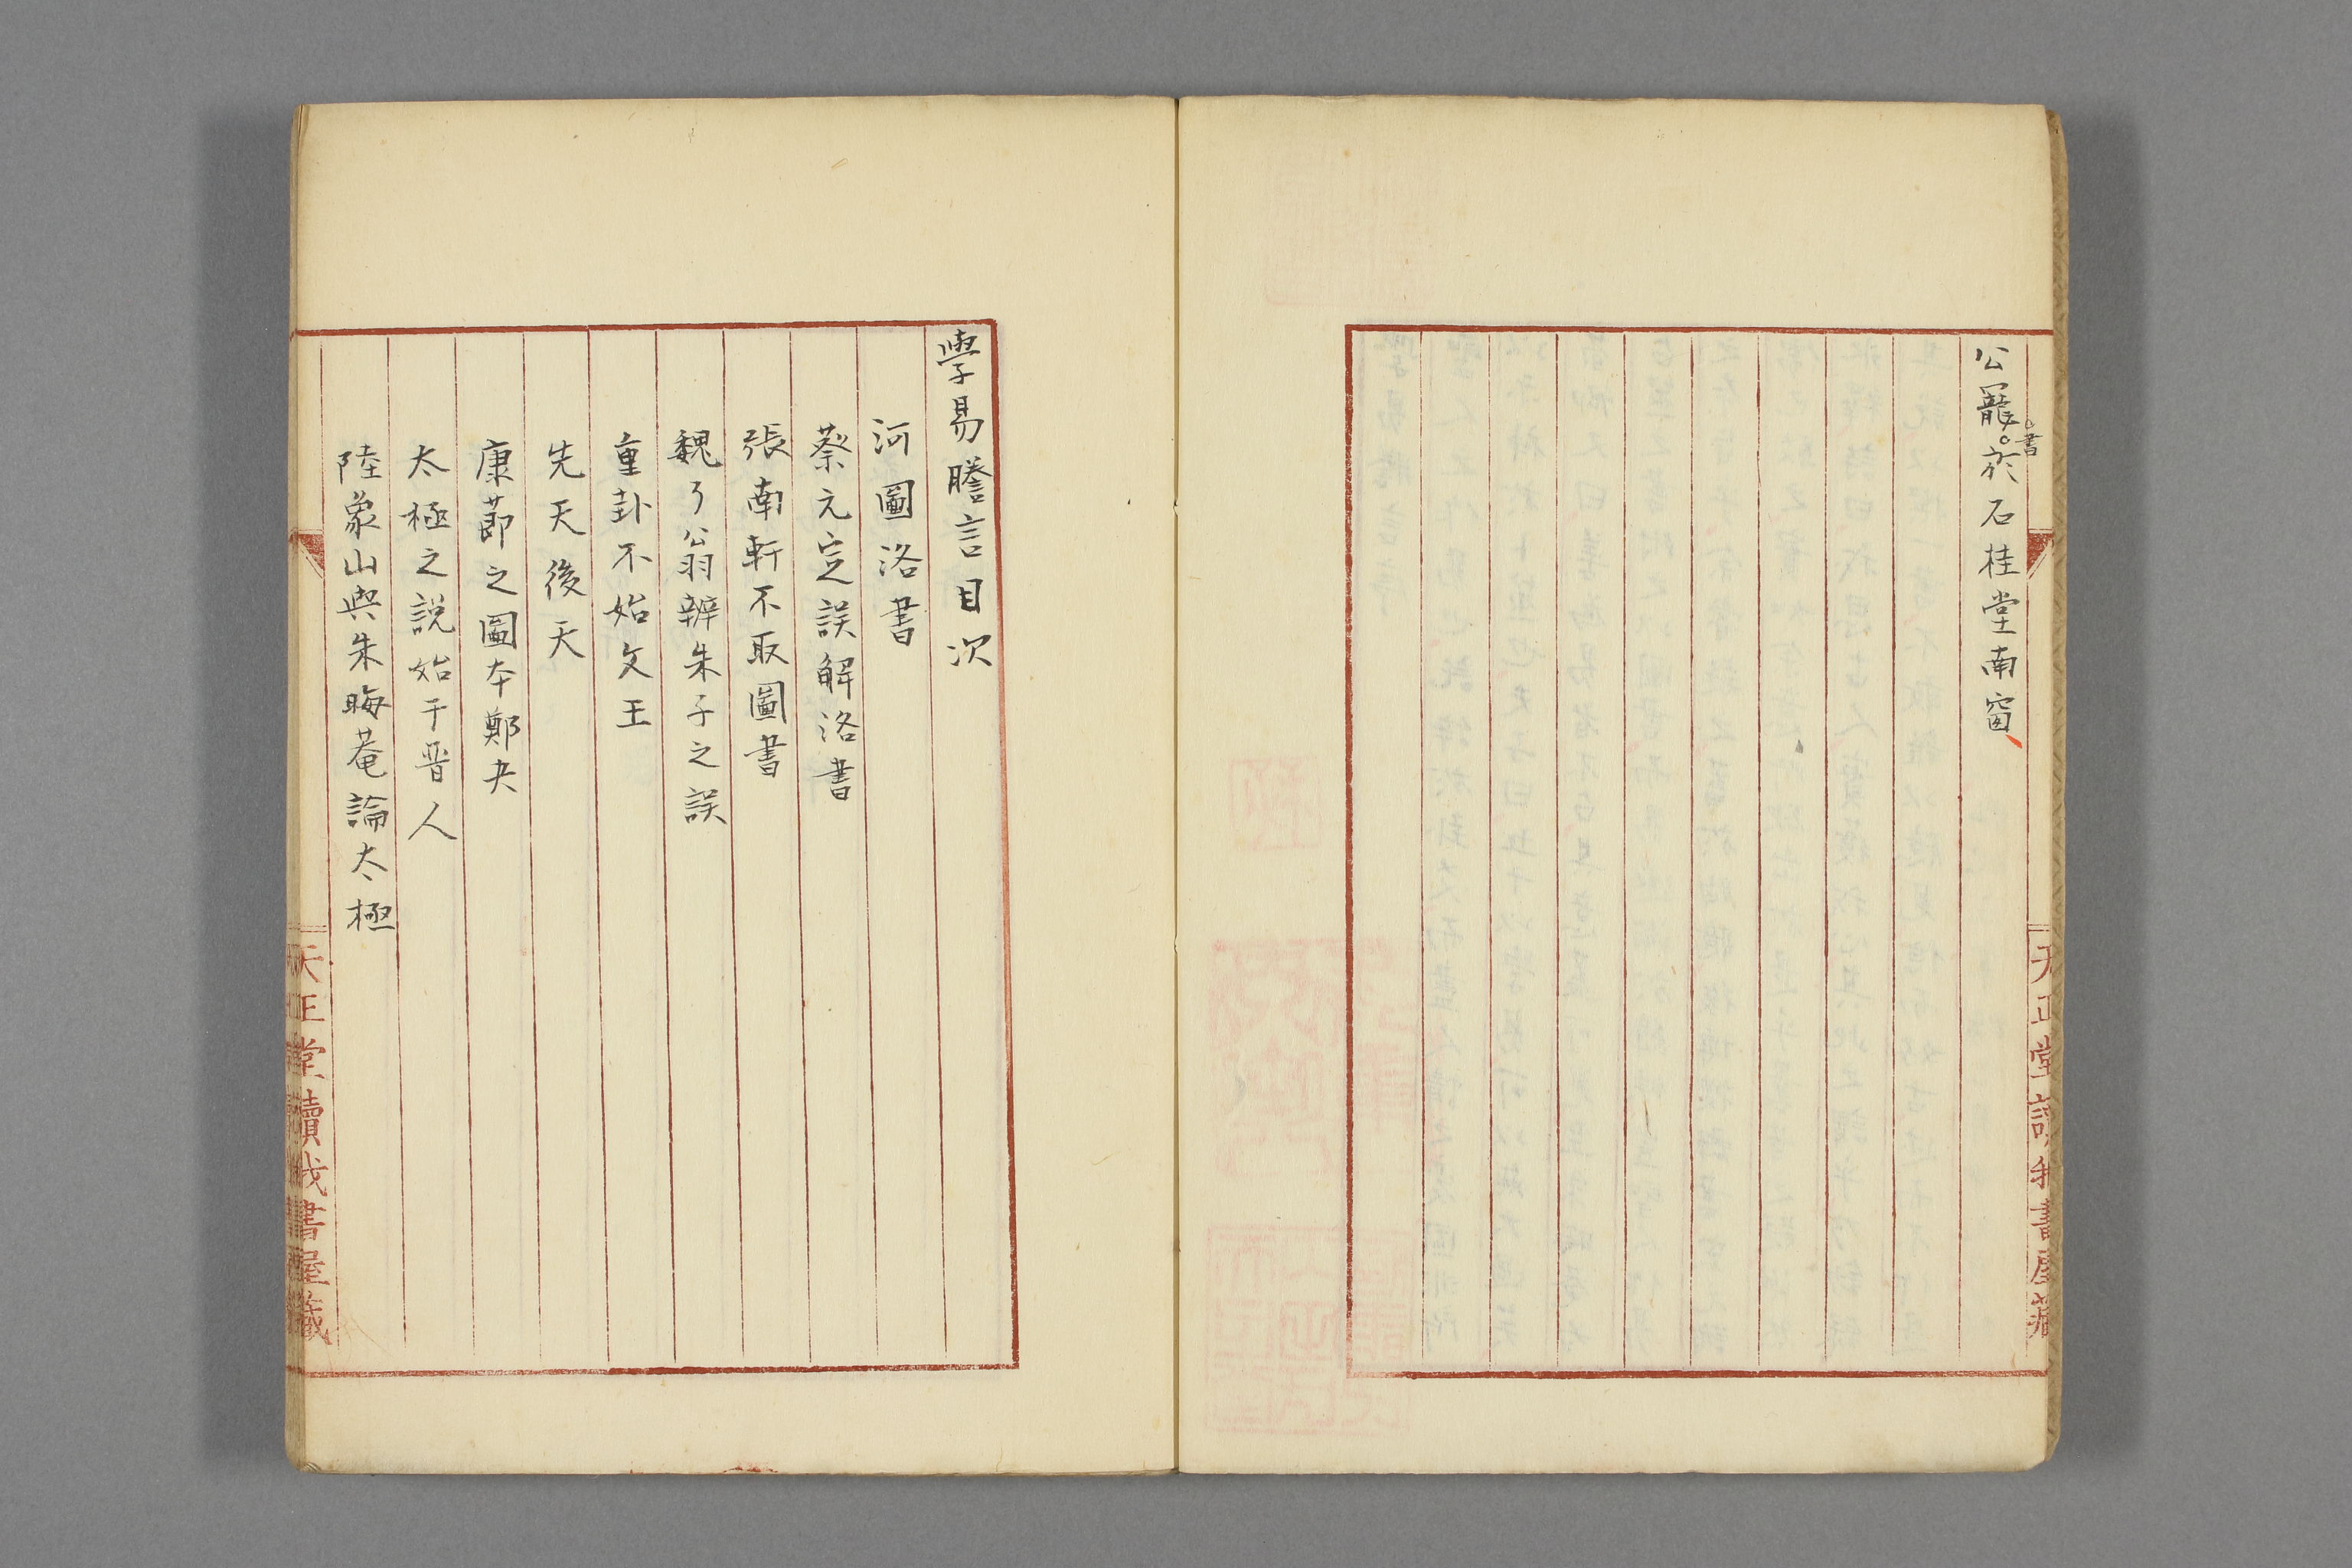 公寵書於石桂堂南窗
天正堂讀我書屋藏
學易謄言目次
河圖洛書
蔡元定誤解洛書
張南軒不取圖書
魏了翁辨朱子之誤
重卦不始文王
先天後天
康莭之圖本鄭夬
太極之説始于晋人
陸象山與朱晦菴論太極
天正堂讀我書屋藏